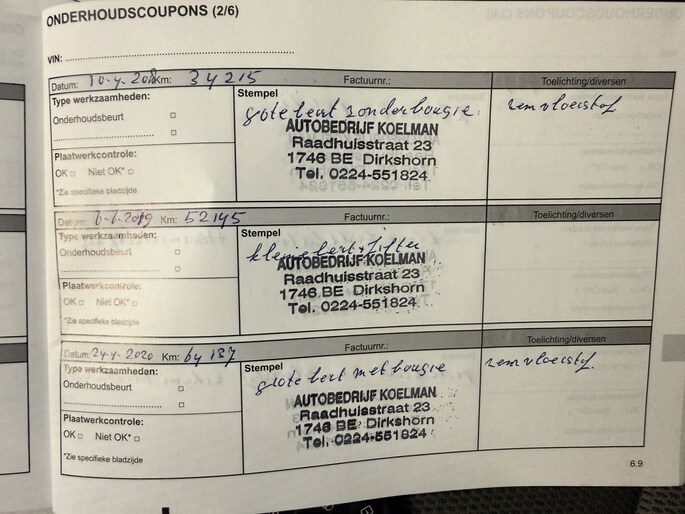 ONDERHOUDSCOUPONS (2/6)
VIN:
Datum: 10-4-2018 Km: 34215 Factuurnr.: Toelichting/diversen
Type werkzaamheden:
Onderhoudsbeurt
Plaatwerkcontrole:
OK Niet OK*
*Zie specifieke bladzijde
Stempel
grote beurt zonder bougie.
AUTOBEDRIJF KOELMAN
Raadhuisstraat 23
1746 BE Dirkshorn
Tel. 0224-551824
remvloeistof
Datum: 6-6-2019 Km: 52145 Factuurnr.: Toelichting/diversen
Type werkzaamheden:
Onderhoudsbeurt
Plaatwerkcontrole:
OK Niet OK*
*Zie specifieke bladzijde
Stempel
kleine beurt + filter
AUTOBEDRIJF KOELMAN
Raadhuisstraat 23
1746 BE Dirkshorn
Tel. 0224-551824
Datum: 24-4-2020 Km: 64187 Factuurnr.: Toelichting/diversen
Type werkzaamheden:
Onderhoudsbeurt
Plaatwerkcontrole:
OK Niet OK*
*Zie specifieke bladzijde
Stempel
grote beurt met bougie
AUTOBEDRIJF KOELMAN
Raadhuisstraat 23
1746 BE Dirkshorn
Tel. 0224-551824
remvloeistof.
6.9